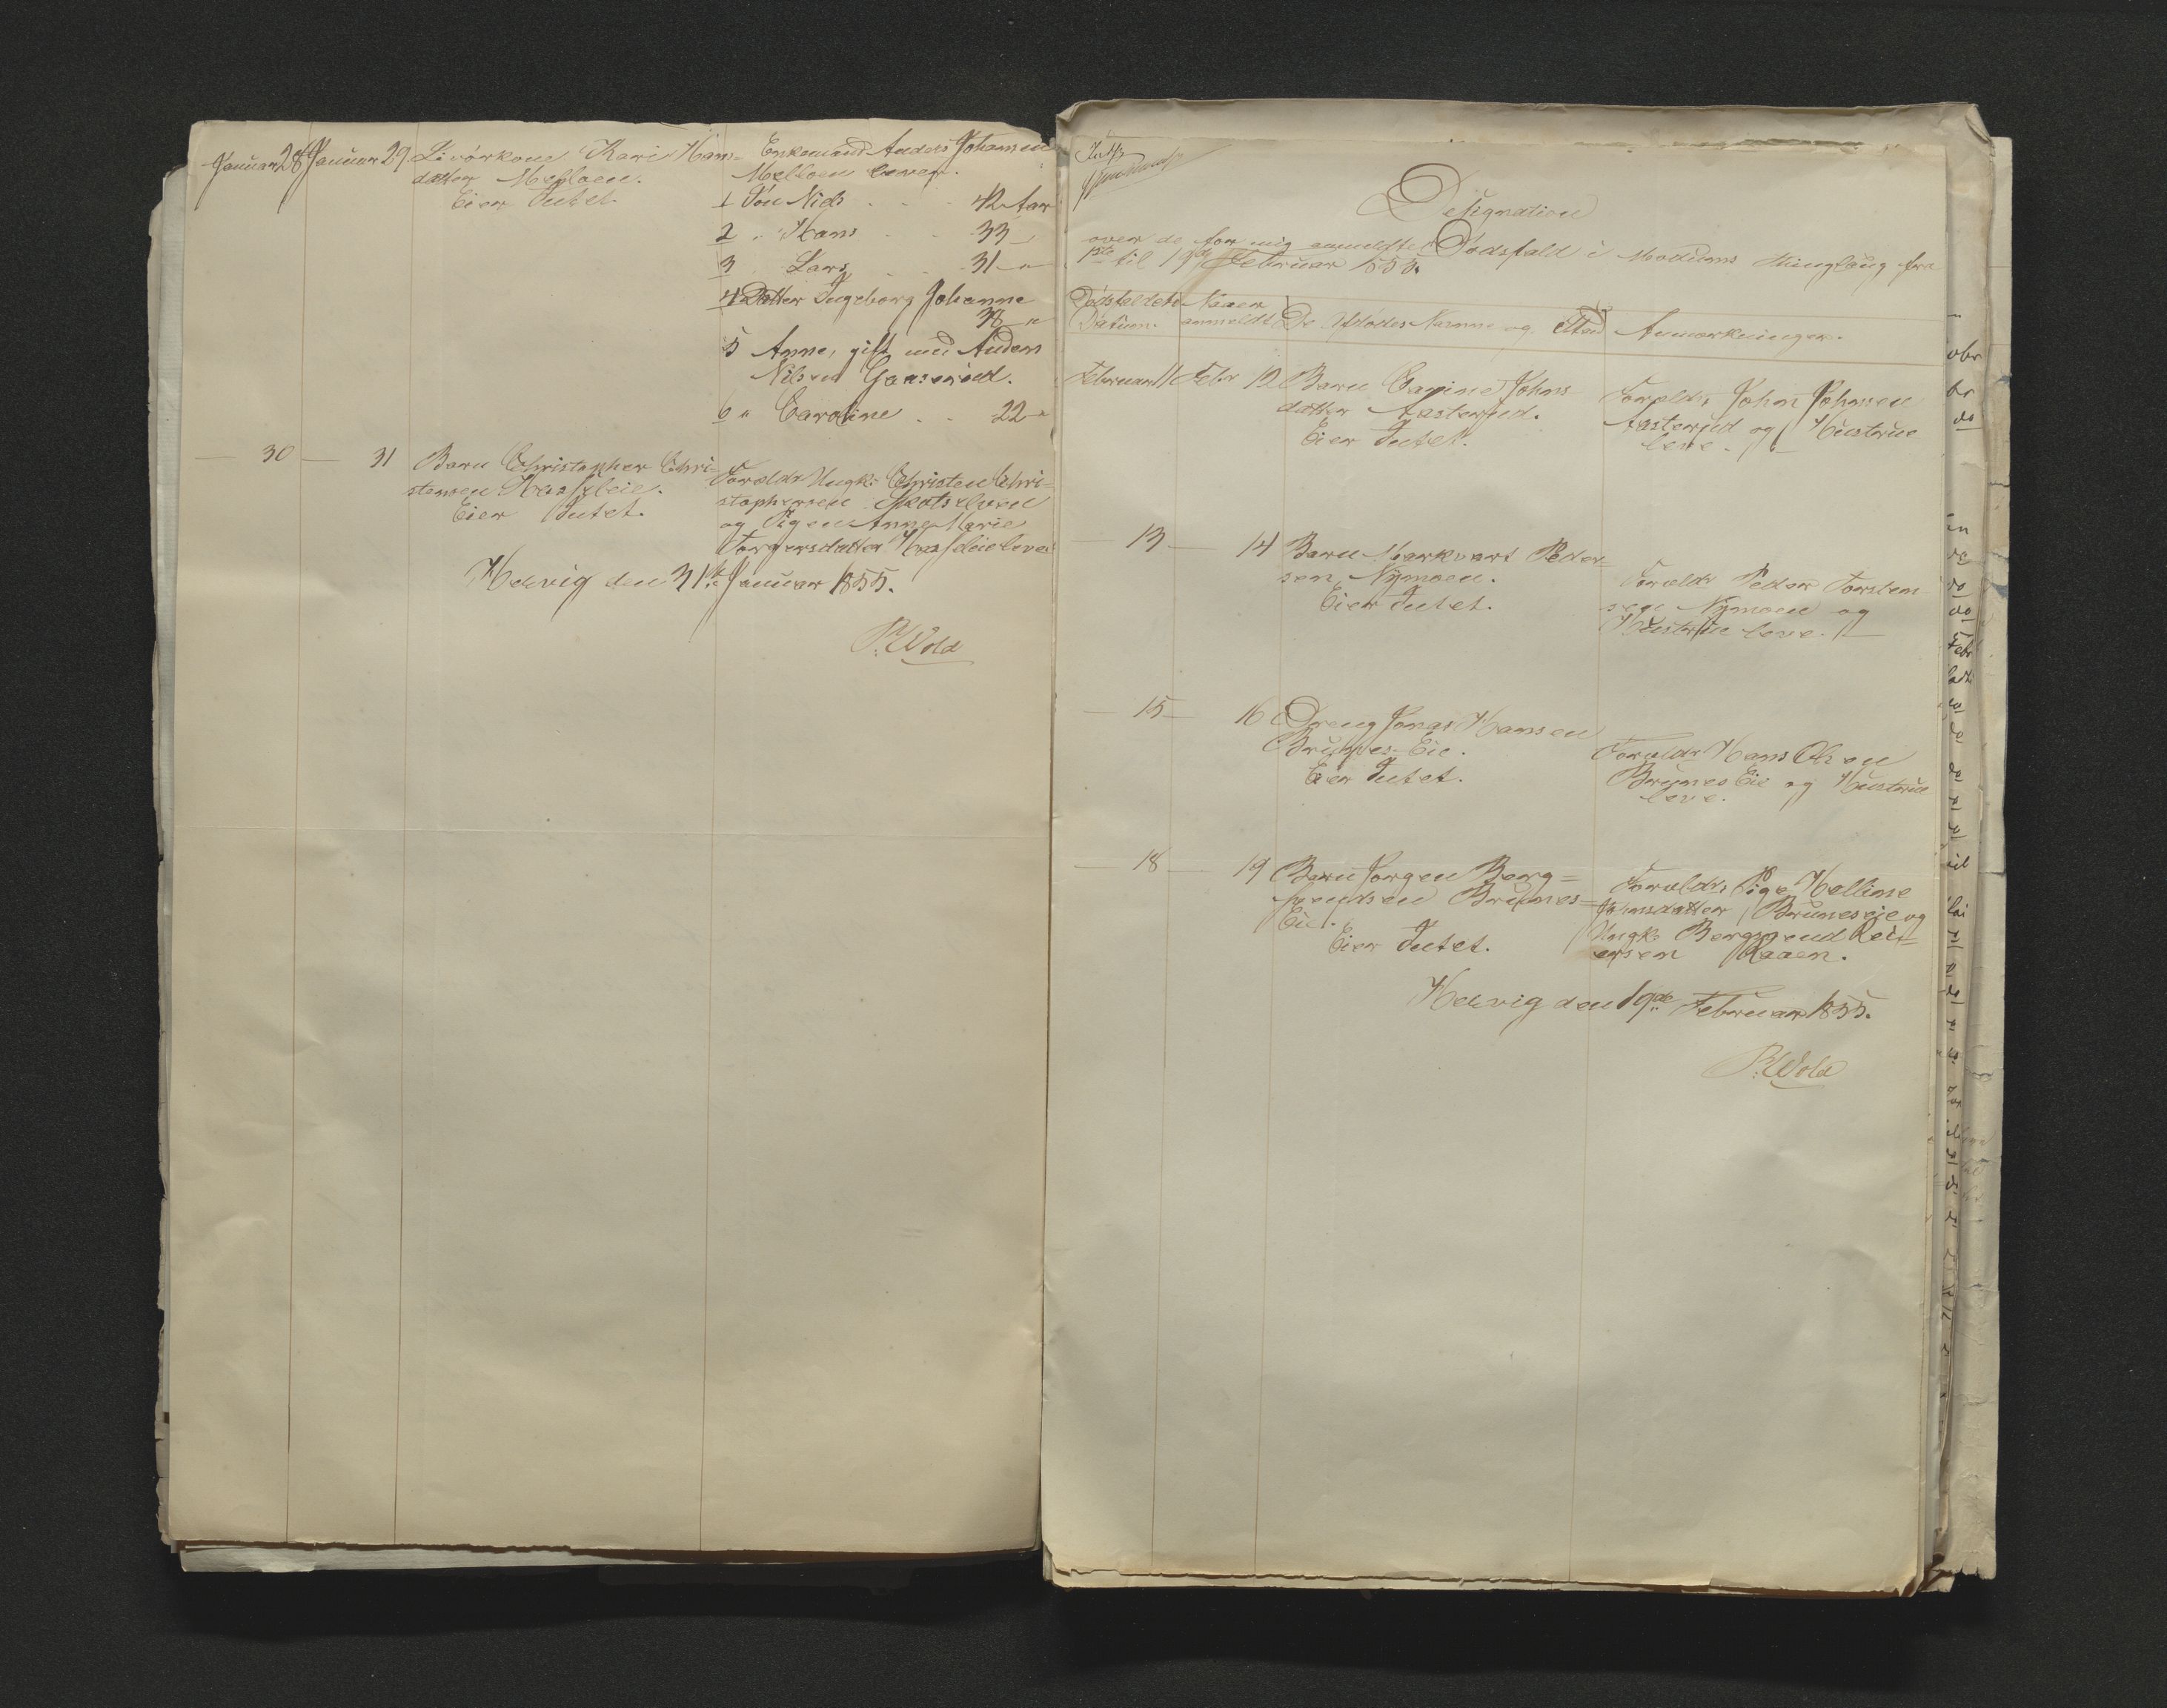 Januar 28 Januar 29 Livörkone Kari Hans=
datter Melloen.
Eier Intet.
Enkemand Anders Johannsen
Melloen lever.
1 Sön Niels . . . 42 Aar
2 " Hans . . 33 "
3 Lars . . 31 "
4 Datter Ingeborg Johanne
38 "
5 Anne, gift med Anders
Nilsen Gaaserud.
6 " Caroline . . 22 "
— 30 — 31 Barn Christopher Chri=
stensen
Eier Intet.
Foræld: Ungk: Christen Chri=
stophersen Skotselven
og Pigen Anne Marie
Torgersdatter lever
Hedvig den 31te Januar 1855.
P. Wold
Designation
over de for mig anmeldte Dödsfald i Modums Thinglaug fra
1ste til 19de Februar 1855.
Dödsfaldets
Datum.
Naar
anmeldt
De Afdödes Navne og Stand
Anmærkninger.
Februar 11 Febr 12 Barn Carine Johns
datter Aasterud.
Eier Intet.
Foræld: John Johnsen
Aasterud og Hustrue
leve.
— 13 — 14 Barn Markvart Peder
sen Nymoen.
Eier Intet.
Foræld: Peder Torsten
sen Nymoen og
Hustrue leve.
— 15 — 16 Dreng Jonas Hansen
Brunes Eie.
Eier Intet.
Foræld: Hans Olsen
Brunes Eie og Hustrue
leve.
— 18 — 19 Barn Jörgen Berg=
svendsen Brunes=
Eie.
Eier Intet.
Foræld: Pige Helline
Johnsdatter Bruneseie og
Ungk: Bergsvend Rei=
ersen Raaen.
Hedvig den 19de Februar 1855.
P. Wold